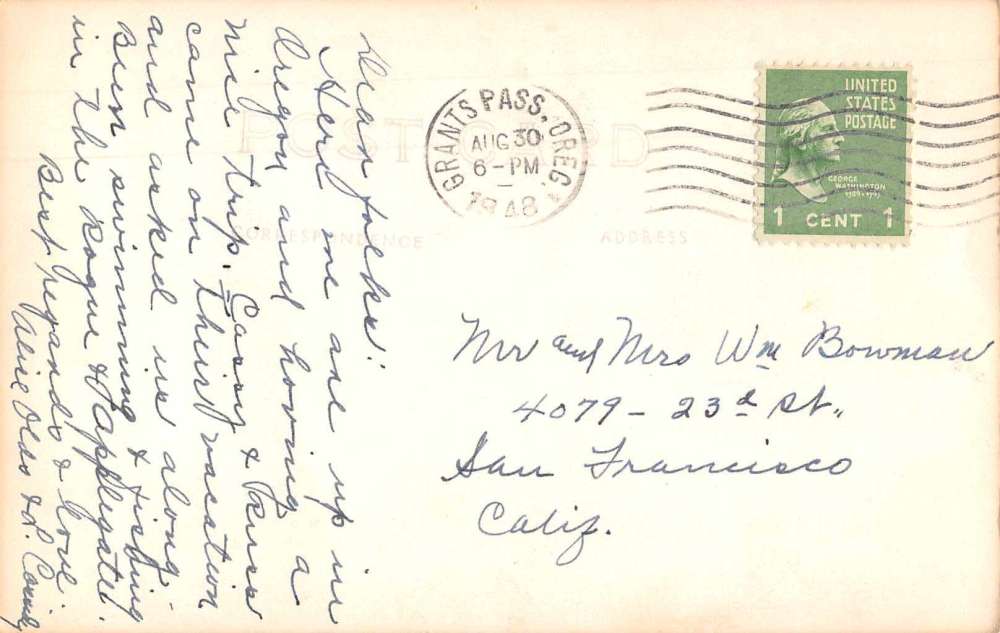 Dear folks:
Here we are up in
Oregon and having a
nice trip. Casey &
came on their vacation
and asked us along.
Been swimming & fishing
in the Rogue & Applegate.
Best regards & love
Alice Olds &
POST CARD
CORRESPONDENCE
ADDRESS
GRANTS PASS, OREG. 1
AUG 30
6-PM
1948
UNITED
STATES
POSTAGE
GEORGE
WASHINGTON
1789-1797
1 CENT 1
Mr and Mrs Wm Bowman
4079 - 23d St.,
San Francisco
Calif.